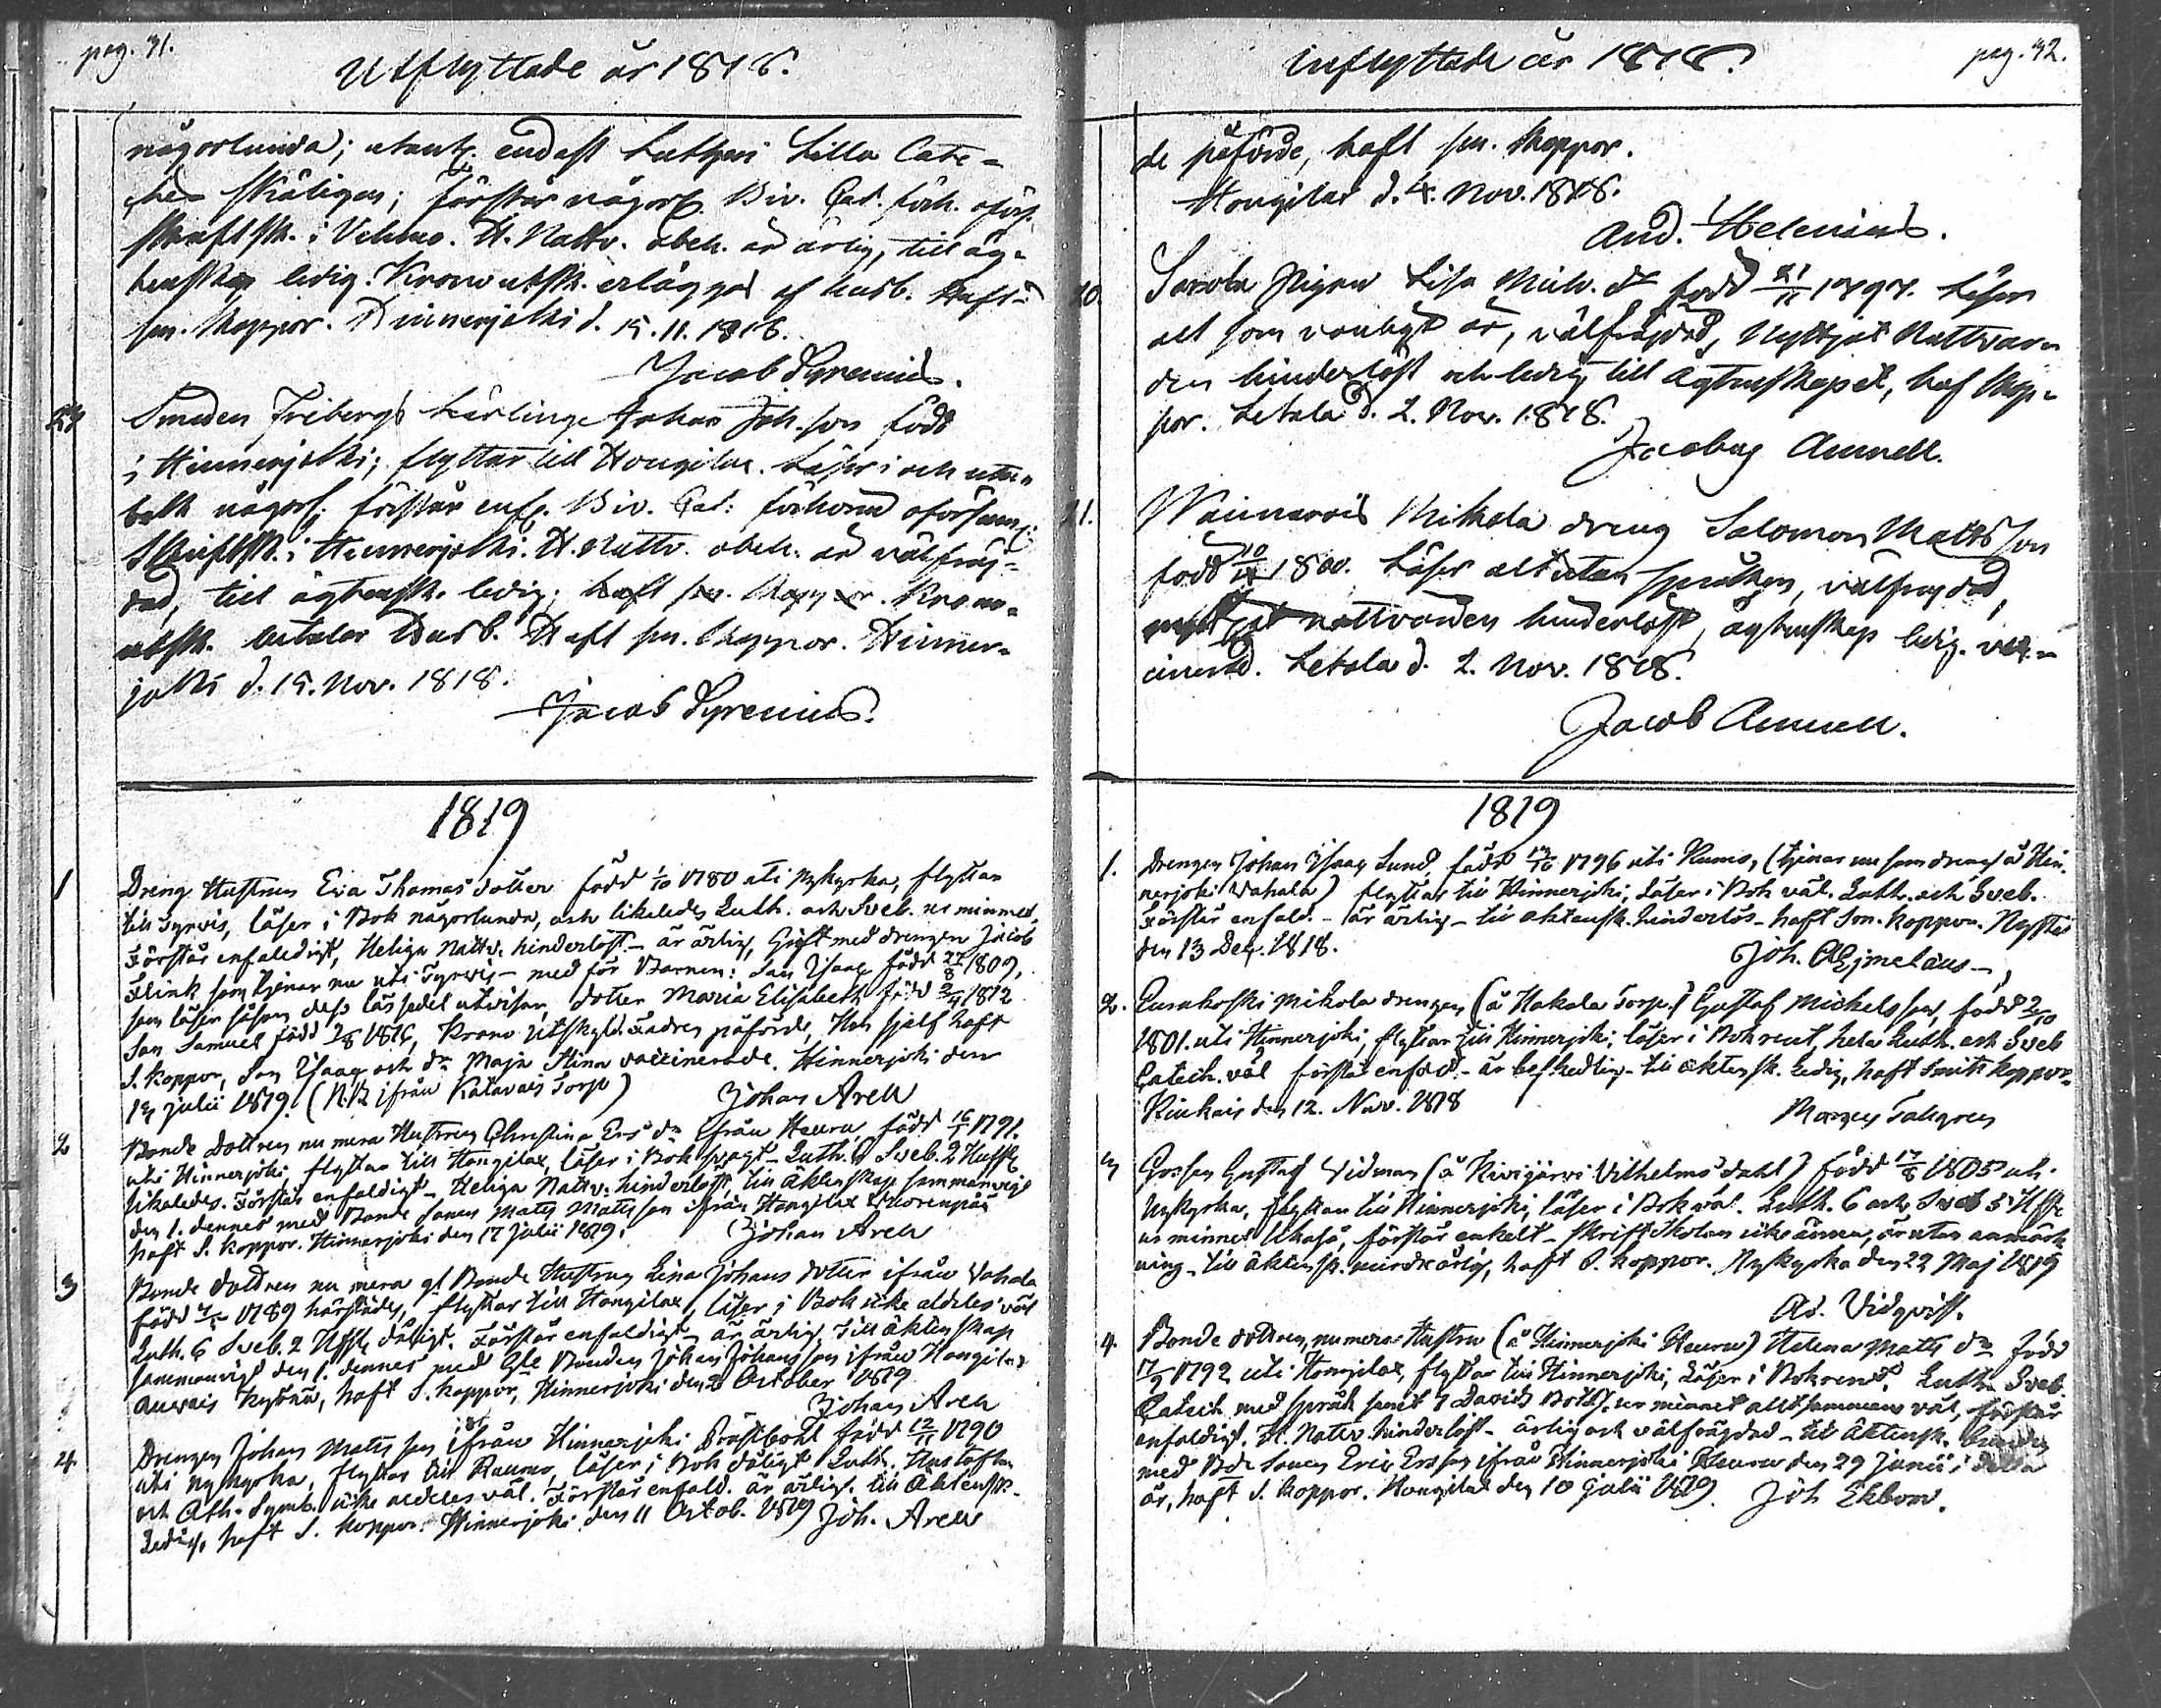 pag. 91.
Utflyttade år 1818.
någorlunda; utant. endast Luthers Lilla Cate-
ches skäligen; förstår någorl. Div. Cat. förh. oförs.
skriftsk. i Vehmo. H. Nattv. obeh. är ärlig, till äg-
tenskap ledig. Krono utsk. erlägges af husb. Haft
sm. koppor. Hinnerjoki d. 15. 11. 1818.
Jacob Syrenius.
Smeden Fribergs Lärling Johan Joh. son född
i Hinnerjoki; flyttar till Hongilax. Läser i och utan
bok någorl. förstår enf. Div. Cat. förhörd oförsuml.
Skriftsk. i Hinnerjoki. H. Nattv. obeh. är välfräj-
dad, till ägtensk. ledig; haft sm. koppor. Krono-
utsk. betalar Husb. Haft sm. koppor. Hinner-
joki d. 15. Nov. 1818.
Jacob Syrenius.
1819
1 Dreng Hustrun Eva Thomas dotter född 1/10 1780 uti Nykyrka, flyttar
till Tyrvis, läser i Bok någorlunda, och likaledes Luth. och Sveb. ur minnet,
Förstår enfaldigt, Heliga Nattv. hinderlöst - är ärlig, Gift med drengen Jacob
Flink som tjenar nu uti Tyrvis - med för Barnen: Son Isaac född 27/8 1809,
som läser såsom dess läs sedel utvisar, dotter Maria Elisabeth född 2/4 1812
Son Samuel född 28/8 1816, Krono Utskyld. Fadren påförde, Hon sjelf haft
S. koppor, Son Isaac och dr Maja Stina vaccinerade. Hinnerjoki den
19 Julii 1819. (N.B. ifrån Katavais Torp) Johan Arell
2 Bonde Dottren nu mera Hustrun Christina Ers dr ifrån Heuru född 16/7 1791.
uti Hinnerjoki, flyttar till Hongilax, läser i Bok svagt - Luth. 6 Sveb. 2 Huffst
likaledes. Förstår enfaldigt - Heliga Nattv. hinderlöst, till Äktenskap sammanvigd
den 1. dennes med Bonde Sonen Matts Matts son ifrån Hongilax
haft S. koppor. Hinnerjoki den 17 Julii 1819. Johan Arell
3 Bonde dottren nu mera gl Bonde Hustrun Lisa Johans dotter ifrån Vahala
född 1789 härstädes, flyttar till Hongilax, läser i Bok icke aldeles väl
Luth. 6 Sveb. 2 Hffst dåligt. Förstår enfaldigt - är ärlig, Till äktenskap
sammanvigd den 1. dennes med Gle Bonden Johan Johans son ifrån Hongilax
haft S. koppor, Hinnerjoki den October 1819
Johan Arell
4 Drengen Johan Matts son ifrån Hinnerjoki Prästbohl född 12/11 1790
uti Nykyrka, flyttar till Raumo, läser i Bok dåligt Luth. Hustaflan
och Ath. Symb. icke aldeles väl. Förstår enfald. är ärlig. till Äktensk.
Ledig. haft S. koppor. Hinnerjoki den 11 Octob. 1819 Joh. Arell
Inflyttade år 1818.
pag. 92.
de påförde, haft sm. koppor.
Hongilax d. 4. Nov. 1818.
And. Helenius.
10. Pigan Lisa Mich. dr född 21/11 1797. Läser
alt som vanligt är, välfräjdad, Nyttjat Nattvar-
den hinderlöst och ledig till ägtenskapet, haf kop-
por. Letala d. 2. Nov. 1818.
Jacobus Aumell.
11. Mikola dreng Salomon Mattsson
född 10/11 1800. Läser alt utan språken, välfrejdad,
nyttjat nattvarden hinderlöst, ägtenskap ledig. vac-
cinerad. Letala d. 2. Nov. 1818.
Jacob Aumell.
1819
1. Drengen Johan Isaac Lund, född 1796 uti Raumo, (tjenar nu som dreng å Hin-
nerjoki Vahala) flyttar till Hinnerjoki, Läser i Bok väl. Luth. och Sveb.
Förstår enfald. - är ärlig - till aktensk. hinderlös - haft Sm. koppor. Nystad
den 13 Dec. 1818.
Joh. Aejmelaeus -
2. Mikola drengen (å Hakala Torp.) Gustaf Michels son, född 2/10
1801. uti Hinnerjoki, flyttar till Hinnerjoki, läser i Bok rent, hela Luth. och Sveb
Catech. väl förstår enfald. - är beskedlig - till äktensk. Ledig, haft Smitt koppor.
Kiukais den 12. Nov. 1818
Tallgren
3 Gossen Gustaf Vidman (å Kivijärvi Vilhelms dahl) född 17/8 1805 uti
Nykyrka, flyttar till Hinnerjoki, läser i Bok väl. Luth. 6 och Sveb 5 Hffst
ur minnet likaså, förstår enkelt - Skriftskolan icke ännu, är utan anmärk
ning - till äktensk. minderårig, haft S. koppor. Nykyrka den 22 Maj 1819
Ad. Vidqvist.
4. Bonde dottren, numera Hustru (å Hinnerjoki Heuru) Helena Matts dr född
17/9 1792 uti Hongilax, flyttar till Hinnerjoki, Läser i Bok rent, Luth. Sveb.
Catech. med språk samt 7 Davids Botts. ur minnet alltsammans väl, förstår
enfaldigt. H. Nattv. hinderlöst - ärlig och välfrägdad - till Äktensk. bunden
med Bde Sonen Eric Ersson ifrån Hinnerjoki Heuru den 29 Junii i detta
år, haft S. koppor. Hongilax den 10 Julii 1819. Joh Ekbom.